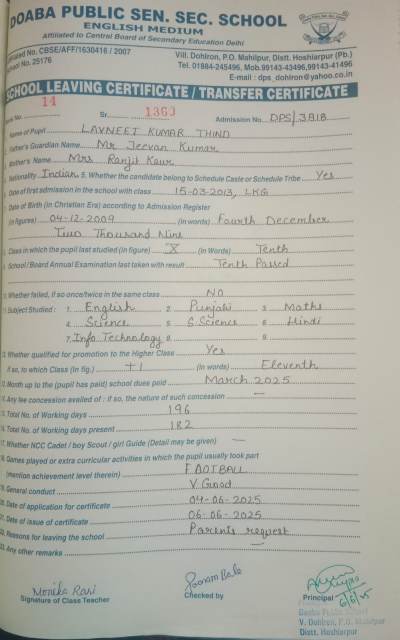 DOABA PUBLIC SEN. SEC. SCHOOL
ENGLISH MEDIUM
Affiliated to Central Board of Secondary Education Delhi
Affiliated No. CBSE/AFF/1630416 / 2007
School No. 25176
Vill. Dohlron, P.O. Mahilpur, Distt. Hoshiarpur (Pb.)
Tel. 01884-245496, Mob.99143-43496,99143-41496
E-mail : dps_dohlron@yahoo.co.in
SCHOOL LEAVING CERTIFICATE / TRANSFER CERTIFICATE
No. 14 Sr. 1360 Admission No. DPS/3818
Name of Pupil LAVNEET KUMAR THIND
Father's Guardian Name Mr Jeevan Kumar
Mother's Name Mrs Ranjit Kaur
Nationality Indian 5. Whether the candidate belong to Schedule Caste or Schedule Tribe Yes
Date of first admission in the school with class 15-03-2013, LKG
Date of Birth (in Christian Era) according to Admission Register
(in figures) 04-12-2009 (in words) Fourth December
Two Thousand Nine
Class in which the pupil last studied (in figure) X (in Words) Tenth
School/Board Annual Examination last taken with result Tenth Passed
Whether failed, if so once/twice in the same class NO
Subject Studied : 1. English 2. Punjabi 3. Maths
4. Science 5. S.Science 6. Hindi
7. Info. Technology 8. 9.
Whether qualified for promotion to the Higher Class Yes
If so, to which Class (in fig.) +1 (in words) Eleventh
Month up to the (pupil has paid) school dues paid March 2025
Any fee concession availed of : if so, the nature of such concession —
Total No. of Working days 196
Total No. of Working days present 182
17. Whether NCC Cadet / boy Scout / girl Guide (Detail may be given) —
18. Games played or extra curricular activities in which the pupil usually took part
(mention achievement level therein) FOOTBALL
19. General conduct V Good
20. Date of application for certificate 04-06-2025
21. Date of issue of certificate 06-06-2025
22. Reasons for leaving the school Parents request
23. Any other remarks —
Monika Rani
Signature of Class Teacher
Poonam Bala
Checked by
Principal
6/6/25
Doaba Public School
V. Dohlron, P.O. Mahilpur
Distt. Hoshiarpur